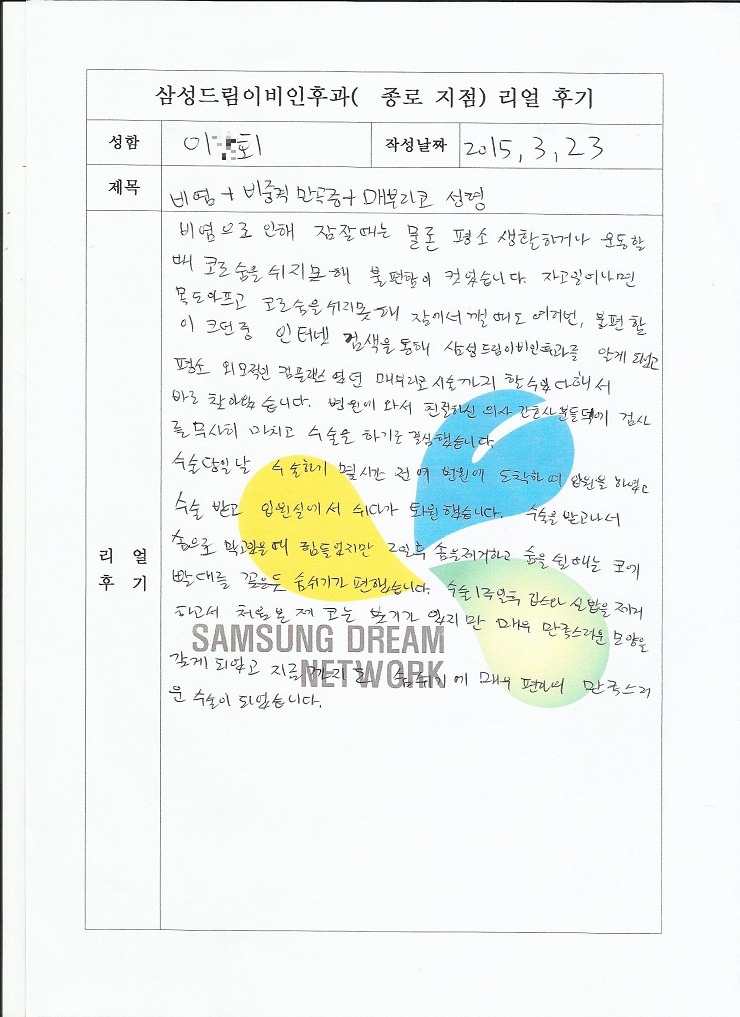 삼성드림이비인후과( 종로 지점) 리얼 후기
성함 이 회 작성날짜 2015, 3, 23
제목 비염 + 비중격 만곡증 + 매부리코 성형
비염으로 인해 잠잘때는 물론 평소 생활하거나 운동할
때 코로 숨을 쉬지못해 불편함이 컷었습니다. 자고일어나면
목도아프고 코로숨을 쉬지못해 잠에서 깰때도 여러번, 불편함
이 크던중 인터넷 검색을 통해 삼성드림이비인후과를 알게 되었고
평소 외모적인 컴플랙스 였던 매부리코 시술까지 할수있다해서
바로 찾아왔습니다. 병원에 와서 친절하신 의사 간호사분들 덕에 검사
를 무사히 마치고 수술을 하기로 결심했습니다.
수술당일날 수술하기 몇시간 전에 병원에 도착하여 입원을 하였고
수술 받고 입원실에서 쉬다가 퇴원했습니다. 수술을 받고나서
솜으로 막고있을때 힘들었지만 2일후 솜을제거하고 숨을 쉴때는 코에
빨대를 꽂은듯 숨쉬기가 편했습니다. 수술1주일후 깁스와 실밥을 제거
하고서 처음본 제 코는 붓기가 있지만 매우 만족스러운 모양을
갖게 되었고 지금까지도 숨쉬기에 매우 편하며 만족스러
운 수술이 되었습니다.
리 얼
후 기
SAMSUNG DREAM
NETWORK